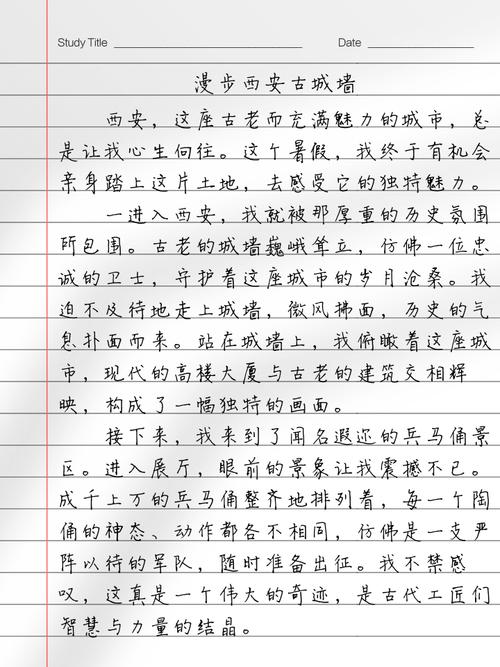 Study Title Date
漫步西安古城墙
西安，这座古老而充满魅力的城市，总
是让我心生向往。这个暑假，我终于有机会
亲身踏上这片土地，去感受它的独特魅力。
一进入西安，我就被那厚重的历史氛围
所包围。古老的城墙巍峨耸立，仿佛一位忠
诚的卫士，守护着这座城市的岁月沧桑。我
迫不及待地走上城墙，微风拂面，历史的气
息扑面而来。站在城墙上，我俯瞰着这座城
市，现代的高楼大厦与古老的建筑交相辉
映，构成了一幅独特的画面。
接下来，我来到了闻名遐迩的兵马俑景
区。进入展厅，眼前的景象让我震撼不已。
成千上万的兵马俑整齐地排列着，每一个陶
俑的神态、动作都各不相同，仿佛是一支严
阵以待的军队，随时准备出征。我不禁感
叹，这真是一个伟大的奇迹，是古代工匠们
智慧与力量的结晶。